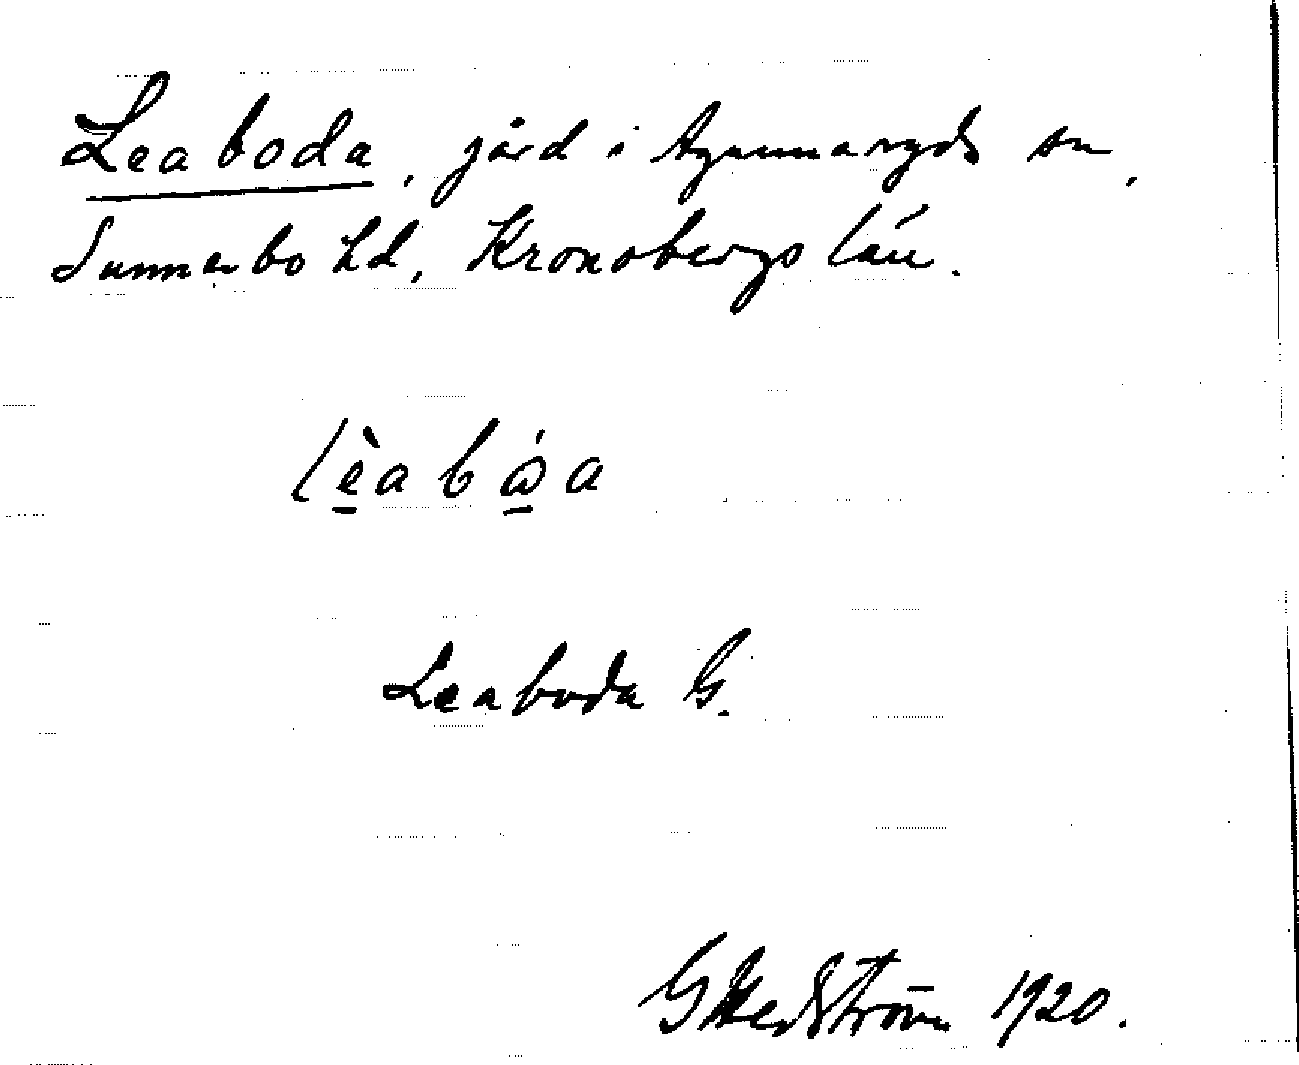 Leaboda, gård i Agunnaryds sn,
Sunnerbo hd, Kronobergs län.
lèabω̇a
Leaboda G.
G Hedström 1920.